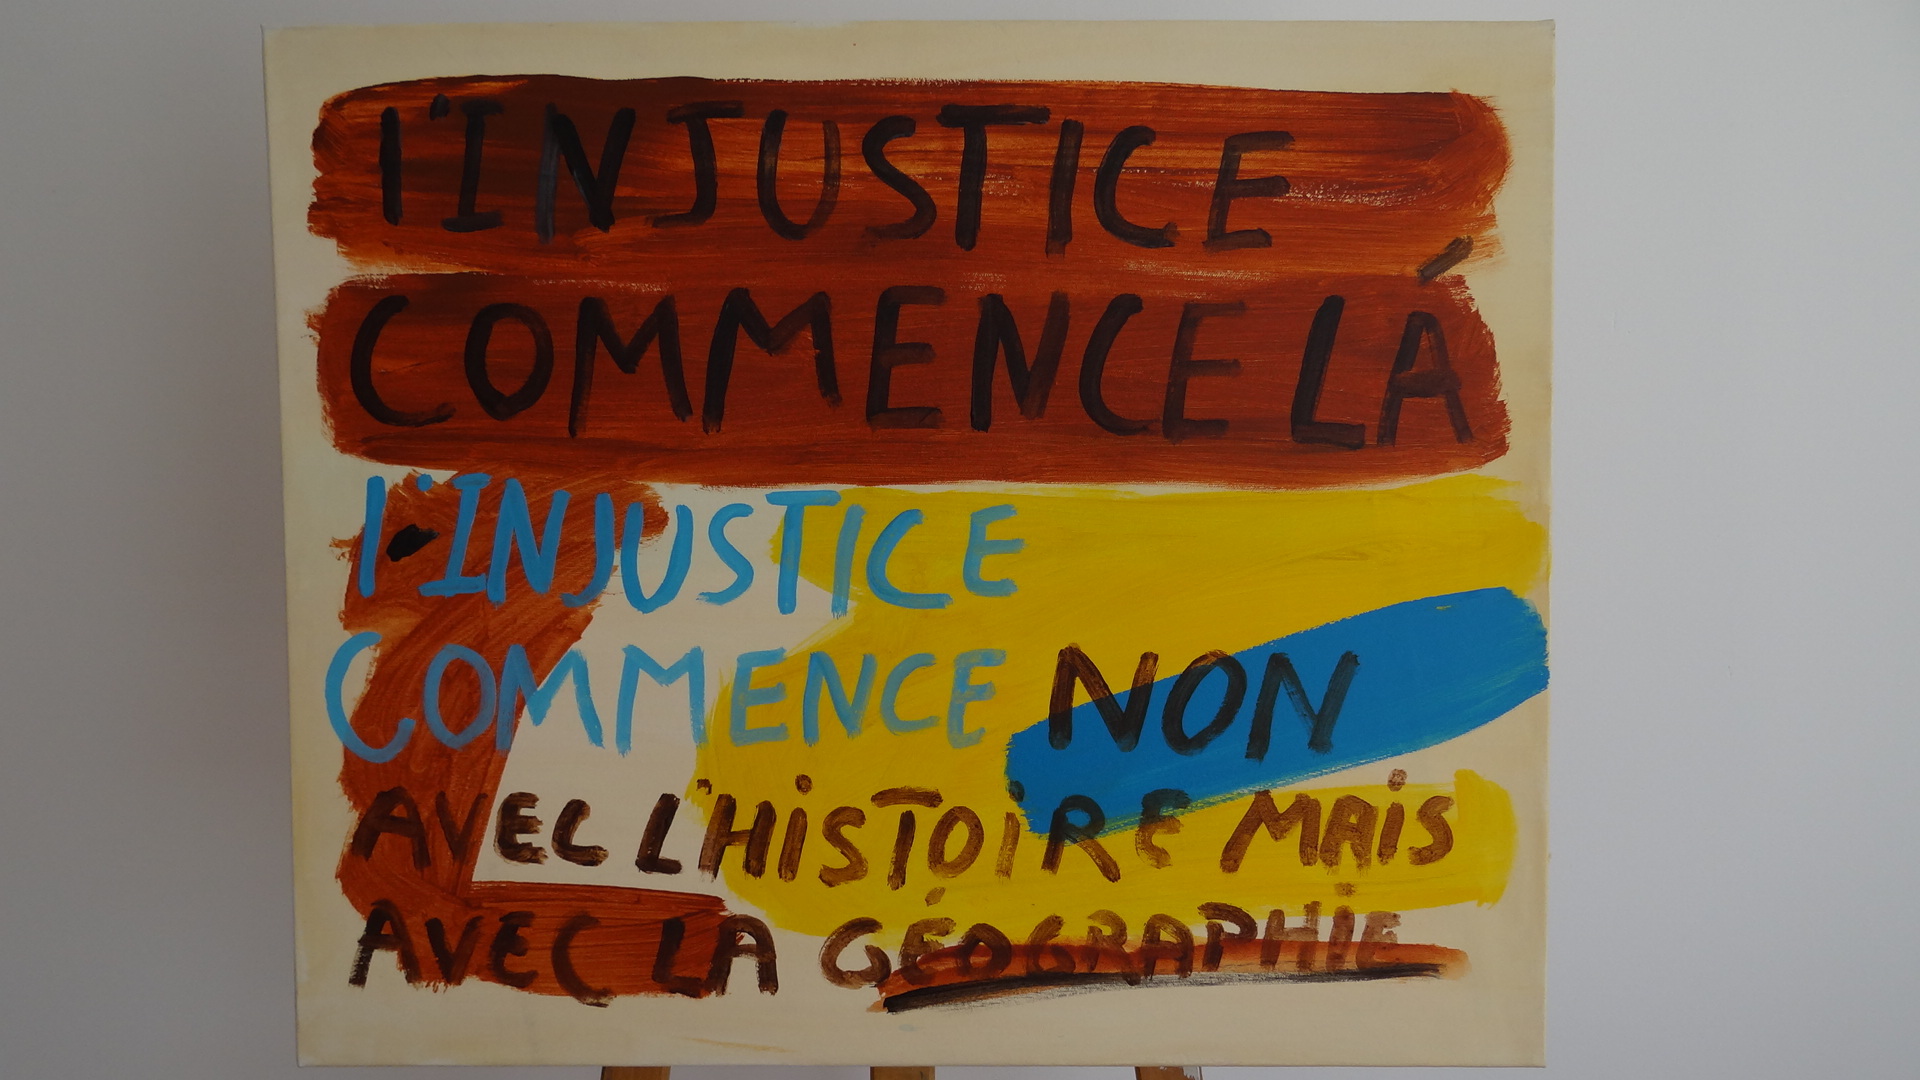 l'INJUSTICE
COMMENCE LÁ
l'INJUSTICE
COMMENCE NON
AVEC L'HiSTOiRE MAiS
AVEC LA GÉOGRAPHIE